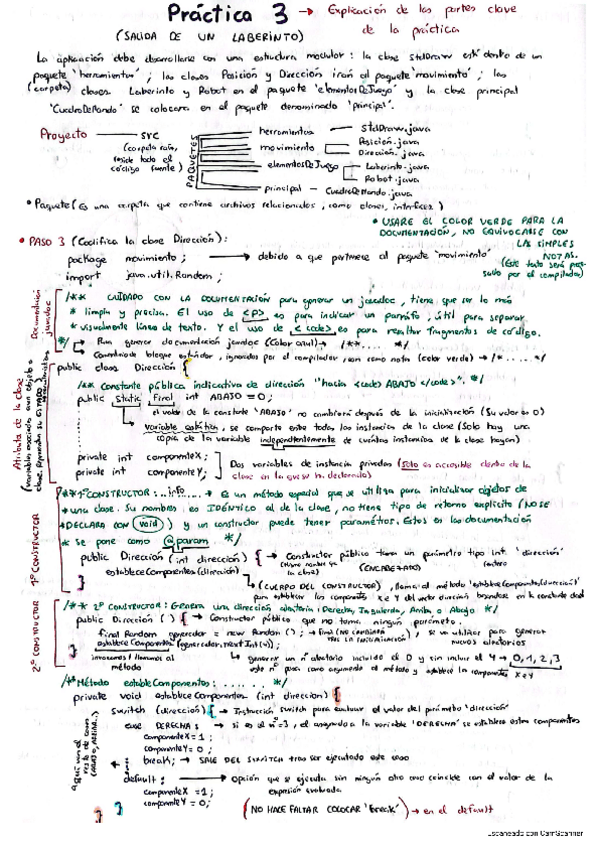 Práctica 3 → Explicación de las partes clave
de la práctica
(SALIDA DE UN LABERINTO)
La aplicación debe desarrollarse con una estructura modular: la clase StdDraw esté dentro de un
paquete 'herramientas'; las clases Posición y Dirección irán al paquete 'movimiento'; las
(carpeta) clases Laberinto y Robot en el paquete 'elementosDeJuego' y la clase principal
'CuadroDeMando' se colocara en el paquete denominado 'principal'.
Proyecto — src
(carpeta raíz,
reside todo el
código fuente)
PAQUETES
herramientas — StdDraw.java
movimiento
Posición.java
Dirección.java
elementosDeJuego
Laberinto.java
Robot.java
principal — CuadroDeMando.java
• Paquete (Es una carpeta que contiene archivos relacionados, como clases, interfaces)
• USARE EL COLOR VERDE PARA LA
DOCUMENTACIÓN, NO EQUIVOCARSE CON
LAS SIMPLES
NOTAS.
(Este texto será
por el compilador)
• PASO 3 (Codifica la clase Dirección):
package movimiento; → debido a que pertenece al paquete 'movimiento'
import java.util.Random;
Documentación
javadoc
/** CUIDADO CON LA DOCUMENTACIÓN para generar un javadoc, tiene que ser lo más
* limpia y precisa. El uso de <p> es para indicar un párrafo, útil para separar
* visualmente línea de texto. Y el uso de <code> es para resaltar fragmentos de código.
*/ Para generar documentación javadoc (Color azul) → /** .... */
Comentario de bloque estándar, ignorados por el compilador, son como nota (color verde) → /* ..... */
public class Dirección {
Atributo de la clase
/** Constante pública indicativa de dirección "hacia <code>ABAJO</code>". */
public static final int ABAJO = 0;
el valor de la constante 'ABAJO' no cambiará después de la inicialización (Su valor es 0)
variable estática, se comparte entre todas las instancias de la clase (Solo hay una
copia de la variable independientemente de cuántas instancias de la clase hayan)
private int componenteX;
private int componenteY;
Dos variables de instancia privadas (Solo es accesible dentro de la
clase en la que se ha declarado)
1º CONSTRUCTOR
/** 1º CONSTRUCTOR: ...info... → Es un método especial que se utiliza para inicializar objetos de
* una clase. Su nombre es IDÉNTICO al de la clase, no tiene tipo de retorno explícito (NO SE
* DECLARA CON void) y un constructor puede tener parámetros. Estos en la documentación
* se pone como @param */
public Dirección (int dirección) { → Constructor público tiene un parámetro tipo int 'dirección'
(ENCABEZADO)
estableceComponentes(dirección)
(CUERPO DEL CONSTRUCTOR), llama al método 'estableceComponentes(dirección)'
para establecer los componentes X e Y del vector dirección basándose en la constante dada
}
2º CONSTRUCTOR
/** 2º CONSTRUCTOR: Genera una dirección aleatoria: Derecha, Izquierda, Arriba o Abajo */
public Dirección () { → Constructor público que no toma ningún parámetro.
final Random generador = new Random(); → final (NO CAMBIARÁ
TRAS LA INICIALIZACIÓN), se va utilizar para generar
nuevos aleatorios
estableceComponentes (generador.nextInt(4));
}
invocamos / llamamos al
método
generar un nº aleatorio incluido el 0 y sin incluir el 4 → 0, 1, 2, 3
este nº pasa como argumento al método y establece la componentes
X e Y
/** Método estableceComponentes: ...... */
private void estableceComponentes (int direccion) {
switch (direccion) { → Instrucción switch para evaluar el valor del parámetro 'dirección'
case DERECHA: → si es el nº=3, el asignado a la variable 'DERECHA' se establece estas componentes
componenteX = 1;
componenteY = 0;
break; → SALE DEL SWITCH tras ser ejecutado este caso
aquí van el
resto de casos
(ABAJO, ARRIBA...)
default: → opción que se ejecuta sin ningún otro caso coincide con el valor de la
expresión evaluada
componenteX = 1;
componenteY = 0;
(NO HACE FALTAR COLOCAR 'break') → en el default
} }
Escaneado con CamScanner